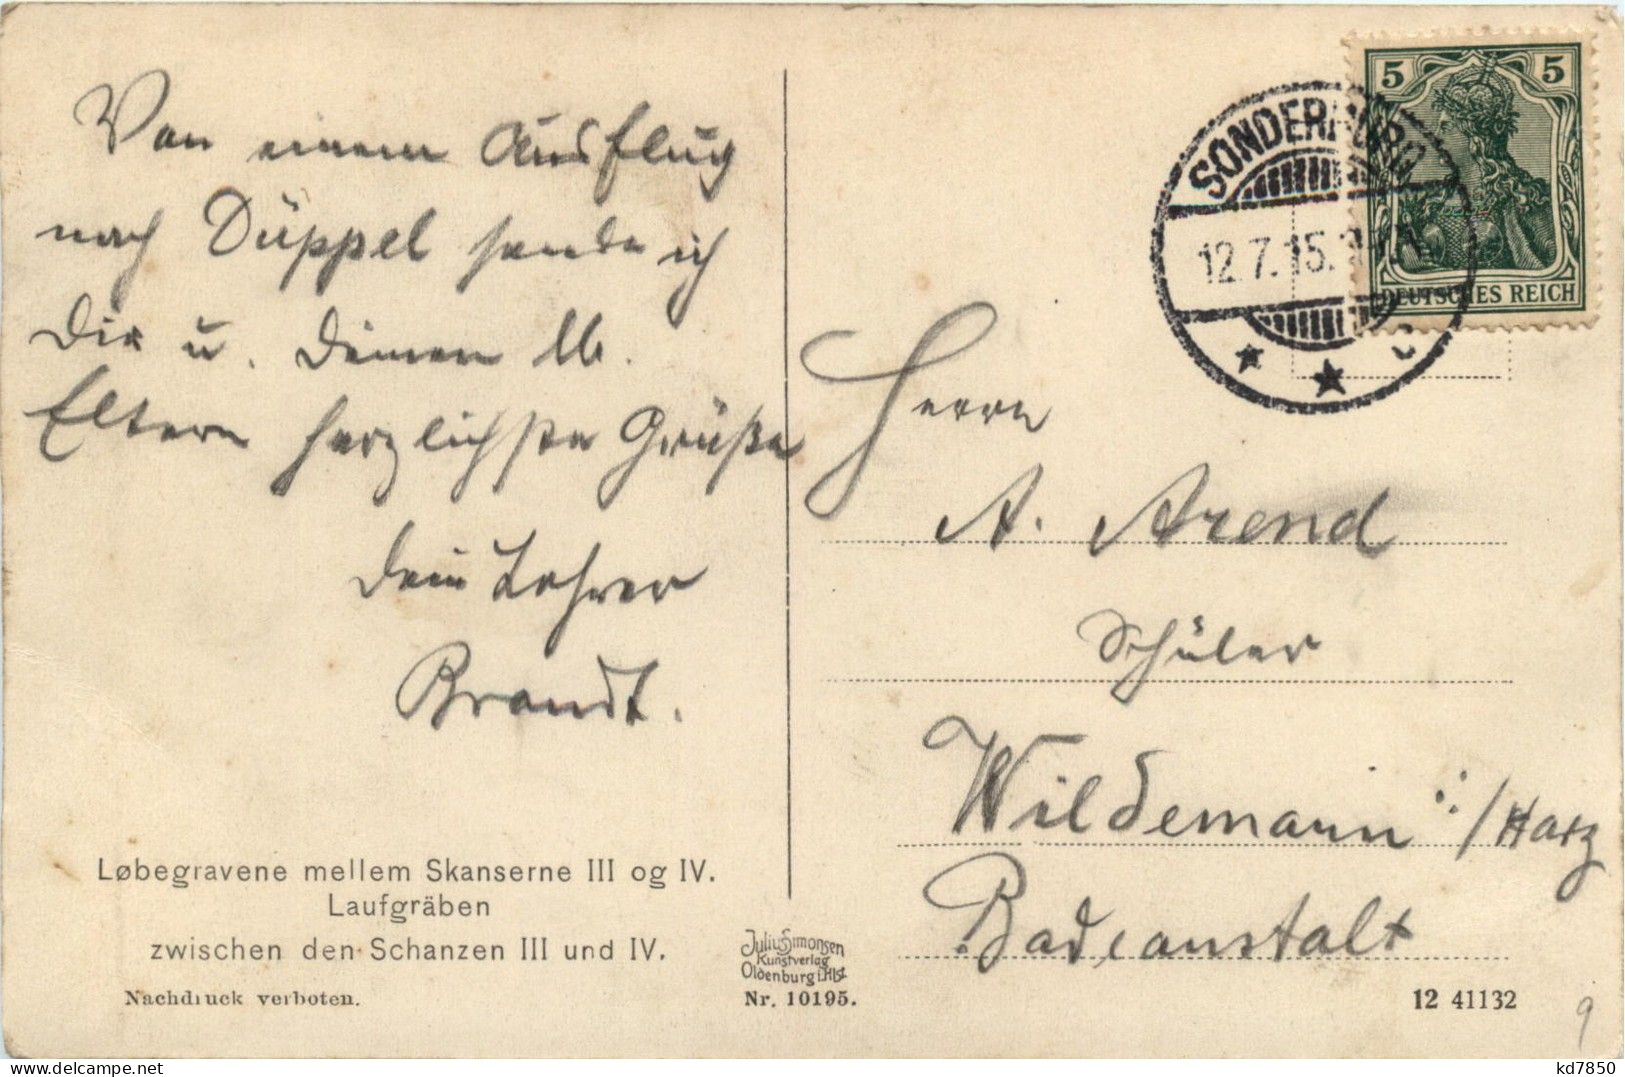 Von einem Ausflug
nach Düppel sende ich
Dir u. Deinen lb.
Eltern herzlichste Grüße
Dein Lehrer
Brandt.
Løbegravene mellem Skanserne III og IV.
Laufgräben
zwischen den Schanzen III und IV.
Nachdruck verboten.
Julius Simonsen
Kunstverlag
Oldenburg i. Hlst.
Nr. 10195.
5 5
DEUTSCHES REICH
SONDERBURG
12.7.15.
Herrn
A. Arend
Schüler
Wildemann /Harz
Badeanstalt
12 41132
9
delcampe.net
kd7850